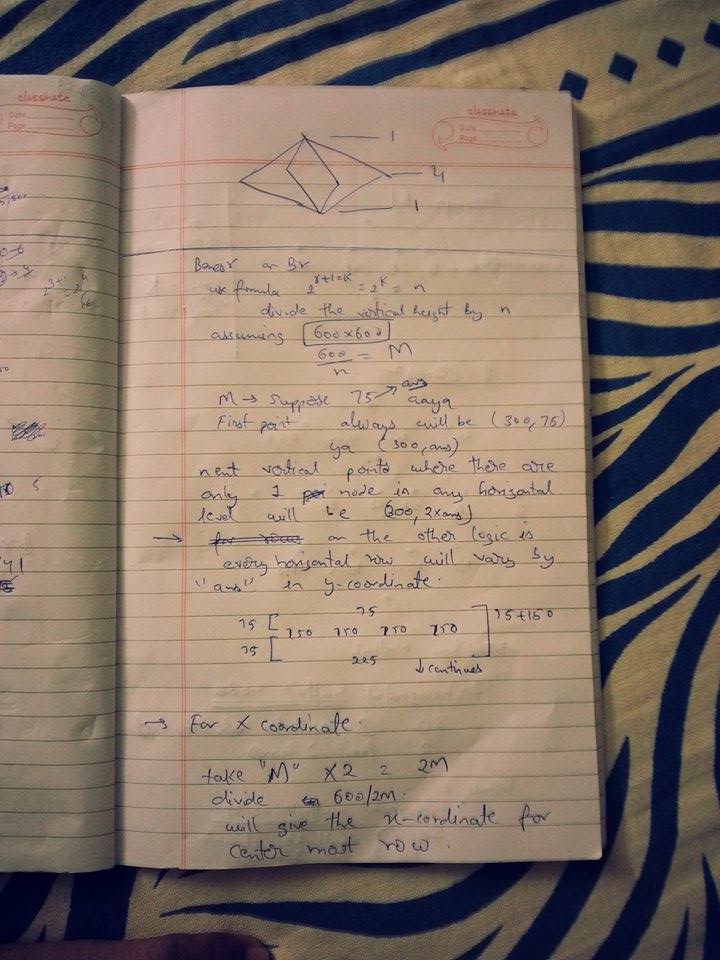 classmate
Date
Page
classmate
Date
Page
1
4
1
or Br
use formula 2^r+1=k = 2^k = n
divide the vertical height by n
assuming 600x600
600/n = M
M → suppose 75 → ans aaya
First point always will be (300, 75)
ya (300, ans)
next vertical points where there are
only 1 node in any horizontal
level will be (300, 2xans)
→ or the other logic is
every horizontal row will vary by
"ans" in y-coordinate.
75 [ 75 ] 75+150
150 150 150 150
75 [ 225 ↓ continues
→ For X coordinate.
take "M" X 2 = 2M
divide 600/2M.
will give the x-cordinate for
center most row.